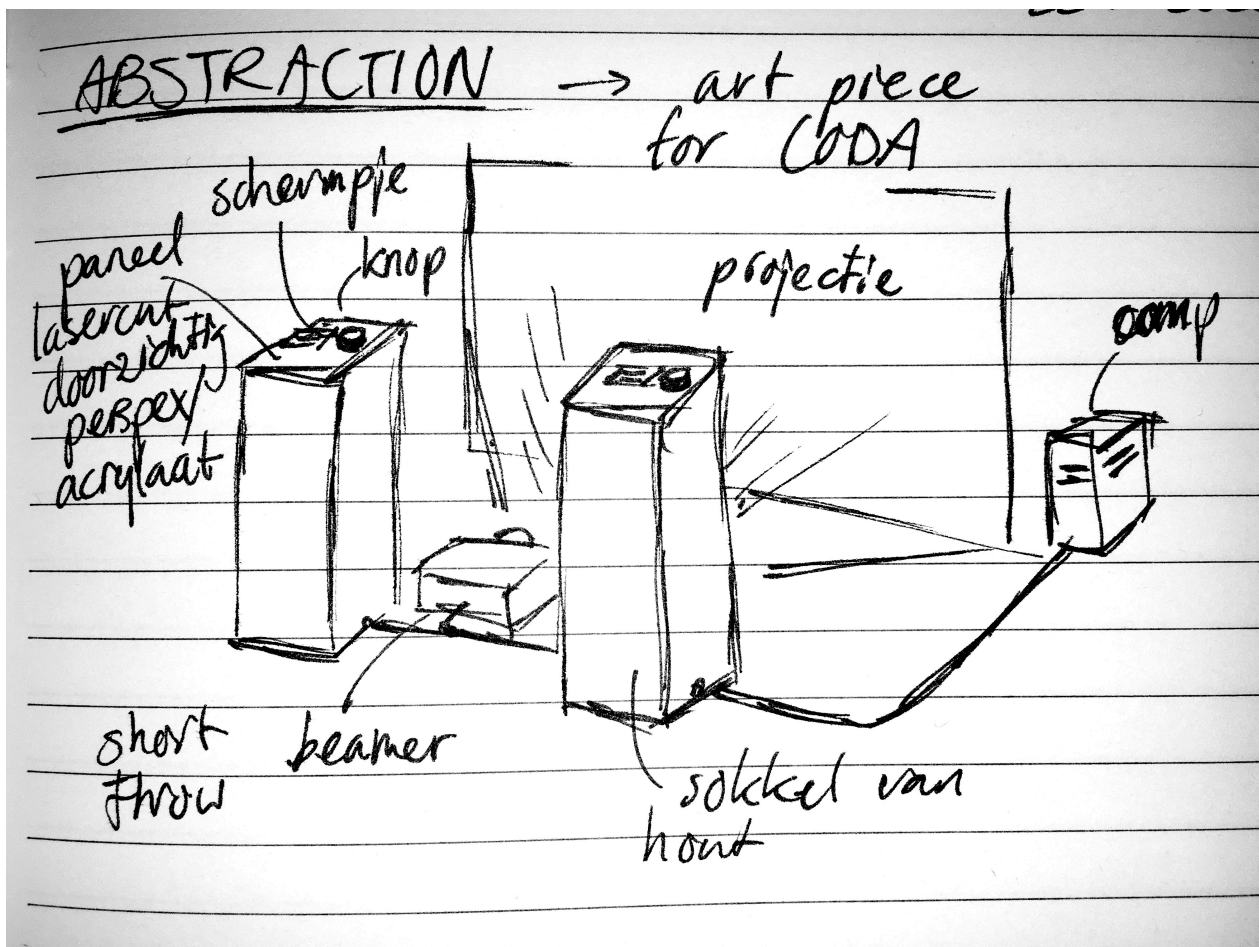 ABSTRACTION → art piece
for CODA
schermpje
knop
paneel
lasercut
doorzichtig
perspex/
acrylaat
projectie
comp
short
throw
beamer
sokkel van
hout